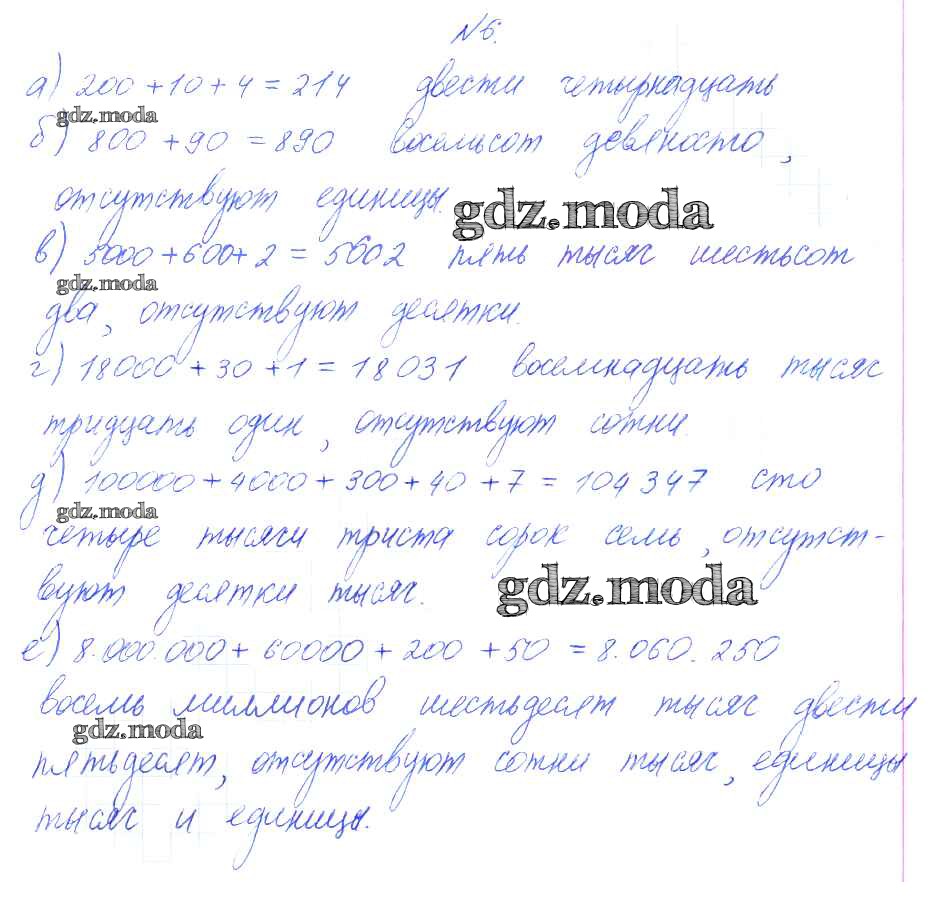 №6.
а) 200 + 10 + 4 = 214 двести четырнадцать
gdz.moda
б) 800 + 90 = 890 восемьсот девяносто,
отсутствуют единицы.
gdz.moda
в) 5000 + 600 + 2 = 5602 пять тысяч шестьсот
gdz.moda
два, отсутствуют десятки.
г) 18000 + 30 + 1 = 18031 восемнадцать тысяч
тридцать один, отсутствуют сотни.
д) 100000 + 4000 + 300 + 40 + 7 = 104347 сто
gdz.moda
четыре тысячи триста сорок семь, отсутст-
вуют десятки тысяч.
gdz.moda
е) 8.000.000 + 60000 + 200 + 50 = 8.060.250
восемь миллионов шестьдесят тысяч двести
gdz.moda
пятьдесят, отсутствуют сотни тысяч, единицы
тысяч и единицы.